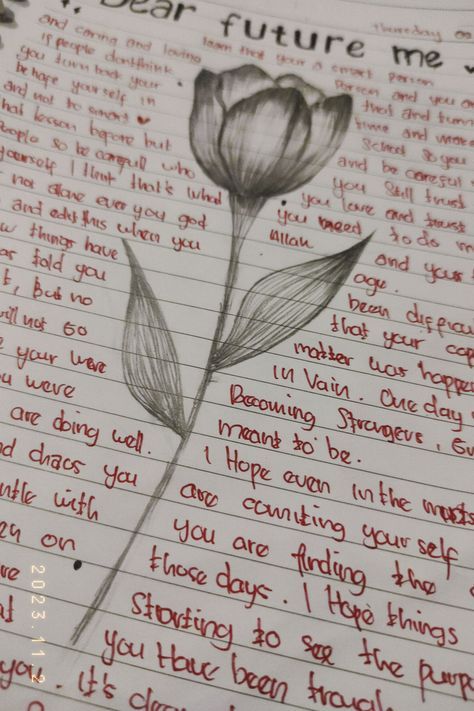 Dear future me
Thursday
and caring and loving
learn that your a smart person
if people don't think
person and you a
you turn back your
that and turn
be hope yourself in
time and
and not to smart
School so you
that lesson before but
and be careful
people so be carefull who
you still trust
yourself I think that's what
you love and trust
not alone ever you god
you need to do
and edit this when you
Allah and your
w things have
age.
as told you
been
t, but no
that your
will not Go
matter was happe
your were
in Vain. One day
u were
Becoming Strangers,
are doing well.
meant to be.
nd chaos you
I Hope even in the
ntle with
are comiting yourself
en on
you are finding the
re
those days. I Hope things
Starting to see the purp
you Have been
you. It's
2023.11.2